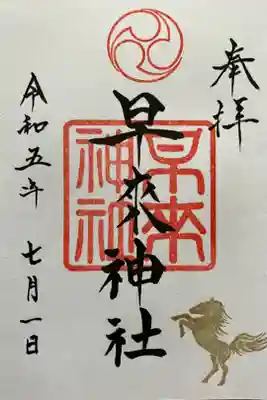 奉拝
早来神社
早来神社
令和五年 七月一日